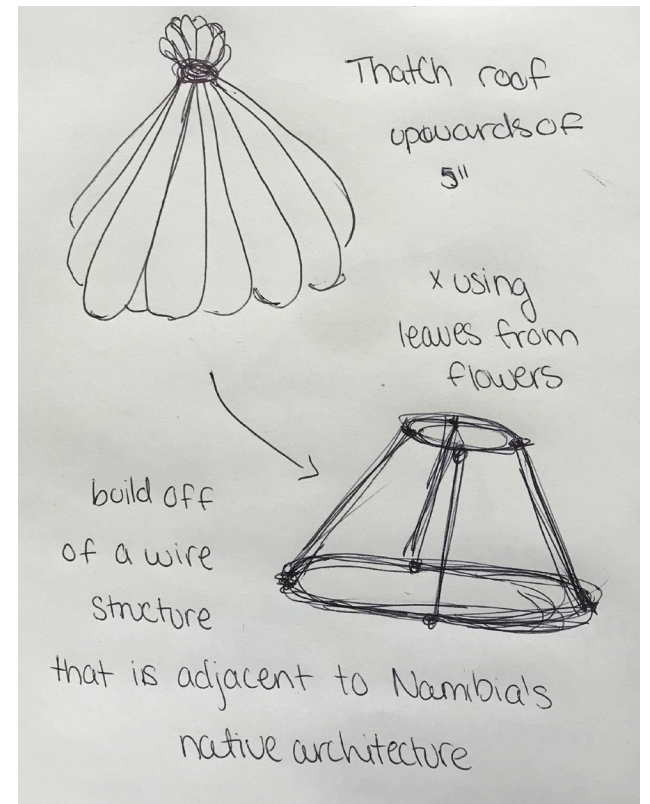 Thatch roof
upwards of
5"
x using
leaves from
flowers
build off
of a wire
structure
that is adjacent to Namibia's
native architecture